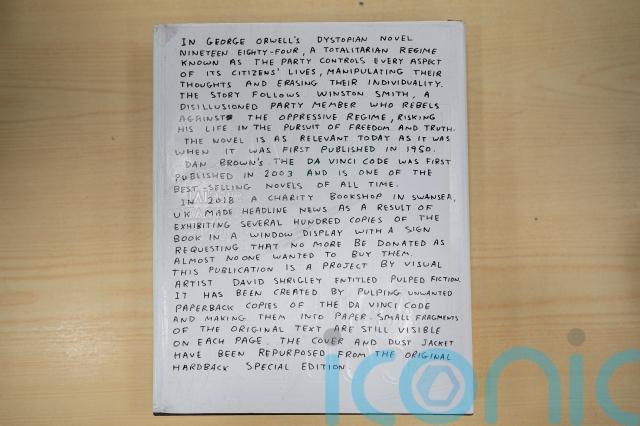 IN GEORGE ORWELL'S DYSTOPIAN NOVEL
NINETEEN EIGHTY-FOUR, A TOTALITARIAN REGIME
KNOWN AS THE PARTY CONTROLS EVERY ASPECT
OF ITS CITIZENS' LIVES, MANIPULATING THEIR
THOUGHTS AND ERASING THEIR INDIVIDUALITY.
THE STORY FOLLOWS WINSTON SMITH, A
DISILLUSIONED PARTY MEMBER WHO REBELS
AGAINST THE OPPRESSIVE REGIME, RISKING
HIS LIFE IN THE PURSUIT OF FREEDOM AND TRUTH.
THE NOVEL IS AS RELEVANT TODAY AS IT WAS
WHEN IT WAS FIRST PUBLISHED IN 1950.
DAN BROWN'S THE DA VINCI CODE WAS FIRST
PUBLISHED IN 2003 AND IS ONE OF THE
BEST-SELLING NOVELS OF ALL TIME.
IN 2018 A CHARITY BOOKSHOP IN SWANSEA,
UK MADE HEADLINE NEWS AS A RESULT OF
EXHIBITING SEVERAL HUNDRED COPIES OF THE
BOOK IN A WINDOW DISPLAY WITH A SIGN
REQUESTING THAT NO MORE BE DONATED AS
ALMOST NO ONE WANTED TO BUY THEM.
THIS PUBLICATION IS A PROJECT BY VISUAL
ARTIST DAVID SHRIGLEY ENTITLED PULPED FICTION.
IT HAS BEEN CREATED BY PULPING UNWANTED
PAPERBACK COPIES OF THE DA VINCI CODE
AND MAKING THEM INTO PAPER. SMALL FRAGMENTS
OF THE ORIGINAL TEXT ARE STILL VISIBLE
ON EACH PAGE. THE COVER AND DUST JACKET
HAVE BEEN REPURPOSED FROM THE ORIGINAL
HARDBACK SPECIAL EDITION.
iconic